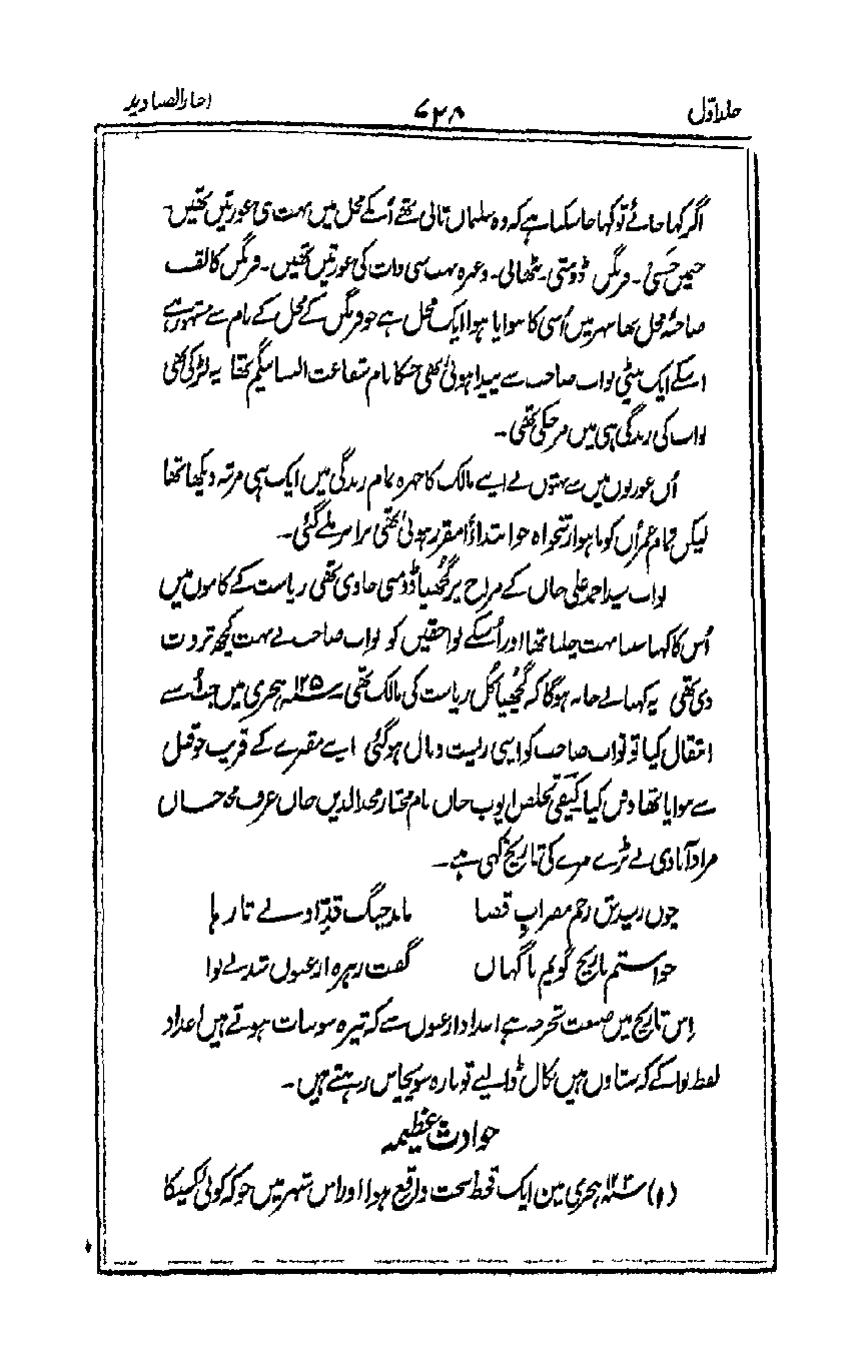 جلد اوّل ۶۲۸ اخبار الصنادید
اگر کہا جائے تو کہا جا سکتا ہے کہ وہ سلیمان ثانی تھے اُنکے محل میں بہت سی عورتیں تھیں۔
حبشن۔ فرنگن ڈومنی۔ پٹھانی۔ وغیرہ بہت سی ذات کی عورتیں تھیں۔ فرنگن کا لقب
صاحبہ محل تھا شہر میں اُسی کا بنوایا ہوا ایک محل ہے جو فرنگن کے محل کے نام سے مشہور ہے
اسکے ایک بیٹی نواب صاحب سے پیدا ہوئی تھی جسکا نام شفاعت النسا بیگم تھا یہ لڑکی بھی
نواب کی زندگی ہی میں مر چکی تھی۔
اُن عورتوں میں سے بہتوں نے اپنے مالک کا چہرہ تمام زندگی میں ایک ہی مرتبہ دیکھا تھا
لیکن تمام عمر اُن کو ماہوار تنخواہ جو ابتداءً مقرر ہوئی تھی برابر ملے گئی۔
نواب سید احمد علی خاں کے مزاج پر گُجُھیا ڈومنی حاوی تھی ریاست کے کاموں میں
اُس کا کہا سنا بہت چلتا تھا اور اُسکے لواحقین کو نواب صاحب نے بہت کچھ ثروت
دی تھی یہ کہنا بے جا نہ ہوگا کہ گُجُھیا کُل ریاست کی مالک تھی ۱۲۵۰ سنہ ہجری میں جب اُسنے
انتقال کیا تو نواب صاحب کو اپنی زیست وبال ہوگئی اپنے مقبرے کے قریب جو قبل
سے بنوایا تھا دفن کیا کیفی تخلص ایوب خاں نام مختار مجد الدین خاں عرف مجو خاں
مرادآبادی نے اُسکے مرنے کی تاریخ کہی ہے۔
چوں رسیدش زخم مضراب قضا ماند چنگ قدّ او بے تار ہا
خواستم تاریخ گویم ناگہاں گفت زہرہ ارغنوں شد بے نوا
اِس تاریخ میں صنعت تخرجہ ہے اعداد ارغنوں سے کہ تیرہ سو سات ہوتے ہیں اعداد
لفظ نوا کے کہ ستاون ہیں نکال ڈالیے تو بارہ سو پچاس رہتے ہیں۔
حوادث عظیمہ
(۱) سنہ ۱۲۳ ہجری مین ایک قحط سخت واقع ہوا اور اس شہر میں جو کہ کوئی کسیکا